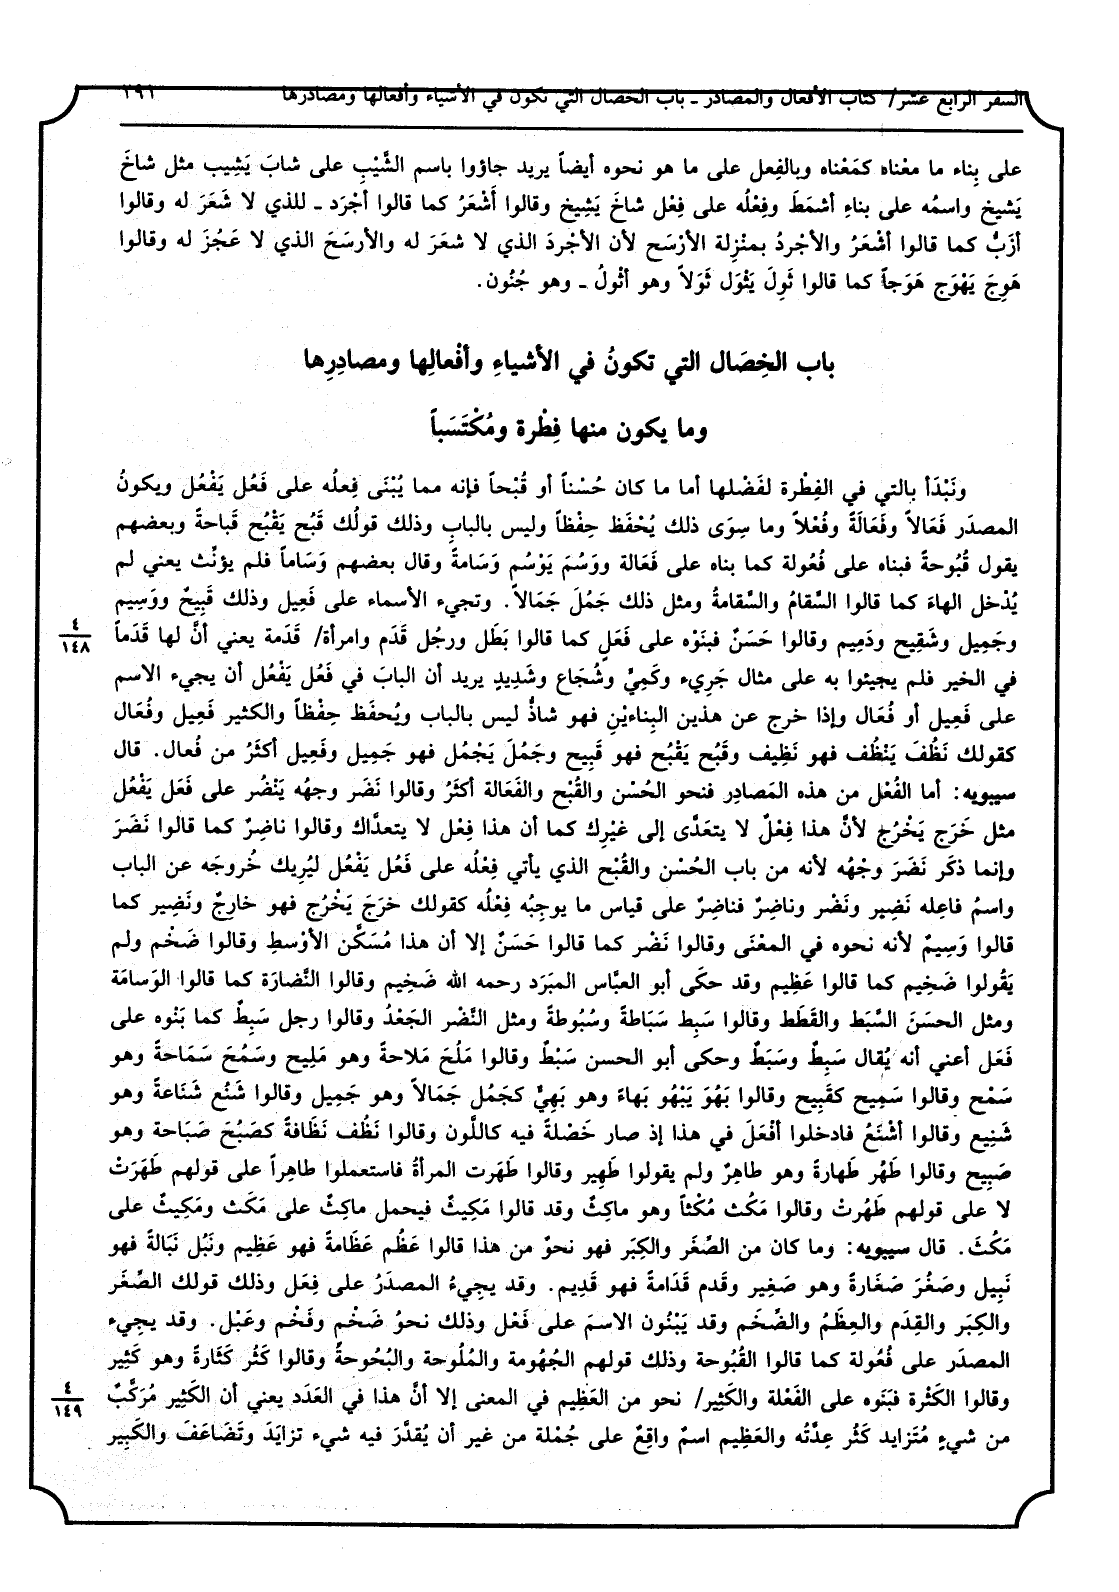 السفر الرابع عشر/ كتاب الأفعال والمصادر ـ باب الخصال التي تكون في الأشياء وأفعالها ومصادرها ٢٩١
على بِناء ما معْناه كمَعْناه وبالفِعل على ما هو نحوه أيضاً يريد جاؤوا باسم الشَّيْبِ على شابَ يَشِيب مثل شاخَ
يَشيخ واسمُه على بناءِ أشمَطَ وفِعْلُه على فِعْل شاخَ يَشِيخ وقالوا أَشْعَرُ كما قالوا أجْرَد ـ للذي لا شَعَرَ له وقالوا
أزَبُّ كما قالوا أشْعَرُ والأجْردُ بمنْزِلة الأرْسَح لأن الأجْردَ الذي لا شعَرَ له والأرسَحَ الذي لا عَجُزَ له وقالوا
هَوِجَ يَهْوَج هَوَجاً كما قالوا ثَوِلَ يَثْوَل ثَوَلاً وهو أثْولُ ـ وهو جُنُون.
باب الخِصَال التي تكونُ في الأشياءِ وأفْعالِها ومصادِرِها
وما يكون منها فِطْرة ومُكْتَسَباً
ونَبْدَأ بالتي في الفِطْرة لفَضْلها أما ما كان حُسْناً أو قُبْحاً فإنه مما يُبْنَى فِعلُه على فَعُل يَفْعُل ويكونُ
المصدَر فَعَالاً وفَعَالَةً وفُعْلاً وما سِوَى ذلك يُحْفَظ حِفْظاً وليس بالبابِ وذلك قولُك قَبُح يَقْبُح قَباحةً وبعضهم
يقول قُبُوحةً فبناه على فُعُولة كما بناه على فَعَالة ووَسُمَ يَوْسُم وَسَامةً وقال بعضهم وَسَاماً فلم يؤنِّث يعني لم
يُدْخل الهاءَ كما قالوا السَّقامُ والسَّقامةُ ومثل ذلك جَمُلَ جَمَالاً. وتجيء الأسماء على فَعِيل وذلك قَبِيحٌ ووَسِيم
وجَمِيل وشَقِيح ودَمِيم وقالوا حَسَنٌ فبنَوْه على فَعَلٍ كما قالوا بَطَل ورجُل قَدَم وامرأة/ قَدَمة يعني أنَّ لها قَدَماً
٤
١٤٨
في الخير فلم يجيئوا به على مثال جَرِيء وكَمِيٍّ وشُجَاع وشَدِيدٍ يريد أن البابَ في فَعُل يَفْعُل أن يجيء الاسم
على فَعِيل أو فُعَال وإذا خرج عن هذين البِناءيْنِ فهو شاذٌّ ليس بالباب ويُحفَظ حِفْظاً والكثير فَعِيل وفُعَال
كقولك نَظُفَ يَنْظُف فهو نَظِيف وقَبُح يَقْبُح فهو قَبِيح وجَمُلَ يَجْمُل فهو جَمِيل وفَعِيل أكثَرُ من فُعال. قال
سيبويه: أما الفُعْل من هذه المَصادِر فنحو الحُسْن والقُبْح والفَعَالة أكثَرُ وقالوا نَضَر وجهُه يَنْضُر على فَعَل يَفْعُل
مثل خَرَج يَخْرُج لأنَّ هذا فِعْلٌ لا يتعَدَّى إلى غيْرِك كما أن هذا فِعْل لا يتعدَّاك وقالوا ناضِرٌ كما قالوا نَضَرَ
وإنما ذكَر نَضَرَ وجْهُه لأنه من باب الحُسْن والقُبْح الذي يأتي فِعْلُه على فَعُل يَفْعُل ليُرِيك خُروجَه عن الباب
واسمُ فاعِله نَضِير ونَضْر وناضِرٌ فناضِرٌ على قياس ما يوجِبُه فِعْلُه كقولك خرَجَ يَخْرُج فهو خارِجٌ ونَضِير كما
قالوا وَسِيمٌ لأنه نحوه في المعْنَى وقالوا نَضْر كما قالوا حَسَنٌ إلا أن هذا مُسَكَّن الأوْسطِ وقالوا ضَخْم ولم
يَقُولوا ضَخِيم كما قالوا عَظِيم وقد حكَى أبو العبَّاس المبَرَد رحمه الله ضَخِيم وقالوا النَّضارَة كما قالوا الوَسامَة
ومثل الحسَنَ السَّبَط والقَطَط وقالوا سَبِط سَبَاطةً وسُبُوطةً ومثل النَّضْر الجَعْدُ وقالوا رجل سَبِطٌ كما بَنَوه على
فَعَل أعني أنه يُقال سَبِطٌ وسَبَطٌ وحكى أبو الحسن سَبْطٌ وقالوا مَلُحَ مَلاحةً وهو مَلِيح وسَمُحَ سَمَاحةً وهو
سَمْح وقالوا سَمِيح كقَبِيح وقالوا بَهُوَ يَبْهُو بَهاءً وهو بَهِيٌّ كجَمُل جَمَالاً وهو جَمِيل وقالوا شَنُع شَنَاعةً وهو
شَنِيع وقالوا أشْنَعُ فادخلوا أفْعَلَ في هذا إذ صار خَصْلةً فيه كاللَّون وقالوا نَظُف نَظَافةً كصَبُحَ صَبَاحة وهو
صَبِيح وقالوا طَهُر طَهارةً وهو طاهِرٌ ولم يقولوا طَهِير وقالوا طَهَرت المرأةُ فاستعملوا طاهِراً على قولهم طَهَرَتْ
لا على قولهم طَهُرتْ وقالوا مَكُث مُكْثاً وهو ماكِثٌ وقد قالوا مَكِيثٌ فيحمل ماكِثٌ على مَكَث ومَكِيثٌ على
مَكُثَ. قال سيبويه: وما كان من الصِّغَر والكِبَر فهو نحوٌ من هذا قالوا عَظُم عَظَامةً فهو عَظِيم ونَبُل نَبَالةً فهو
نَبِيل وصَغُرَ صَغَارةً وهو صَغِير وقَدم قَدَامةً فهو قَدِيم. وقد يجِيءُ المصدَرُ على فِعَل وذلك قولك الصِّغَر
والكِبَر والقِدَم والعِظَمُ والضِّخَم وقد يَبْنُون الاسمَ على فَعْل وذلك نحوُ ضَخْم وفَخْم وعَبْل. وقد يجيء
المصدَر على فُعُولة كما قالوا القُبُوحة وذلك قولهم الجُهُومة والمُلُوحة والبُحُوحةُ وقالوا كَثُر كَثَارةً وهو كَثِير
وقالوا الكَثْرة فبَنَوه على الفَعْلة والكَثِير/ نحو من العَظِيم في المعنى إلا أنَّ هذا في العَدَد يعني أن الكَثِير مُرَكَّبٌ
٤
١٤٩
من شيءٍ مُتَزايد كَثُر عِدَّتُه والعَظِيم اسمٌ واقِعٌ على جُمْلة من غير أن يُقدَّر فيه شيء تزايَدَ وتَضَاعَفَ والكَبِير